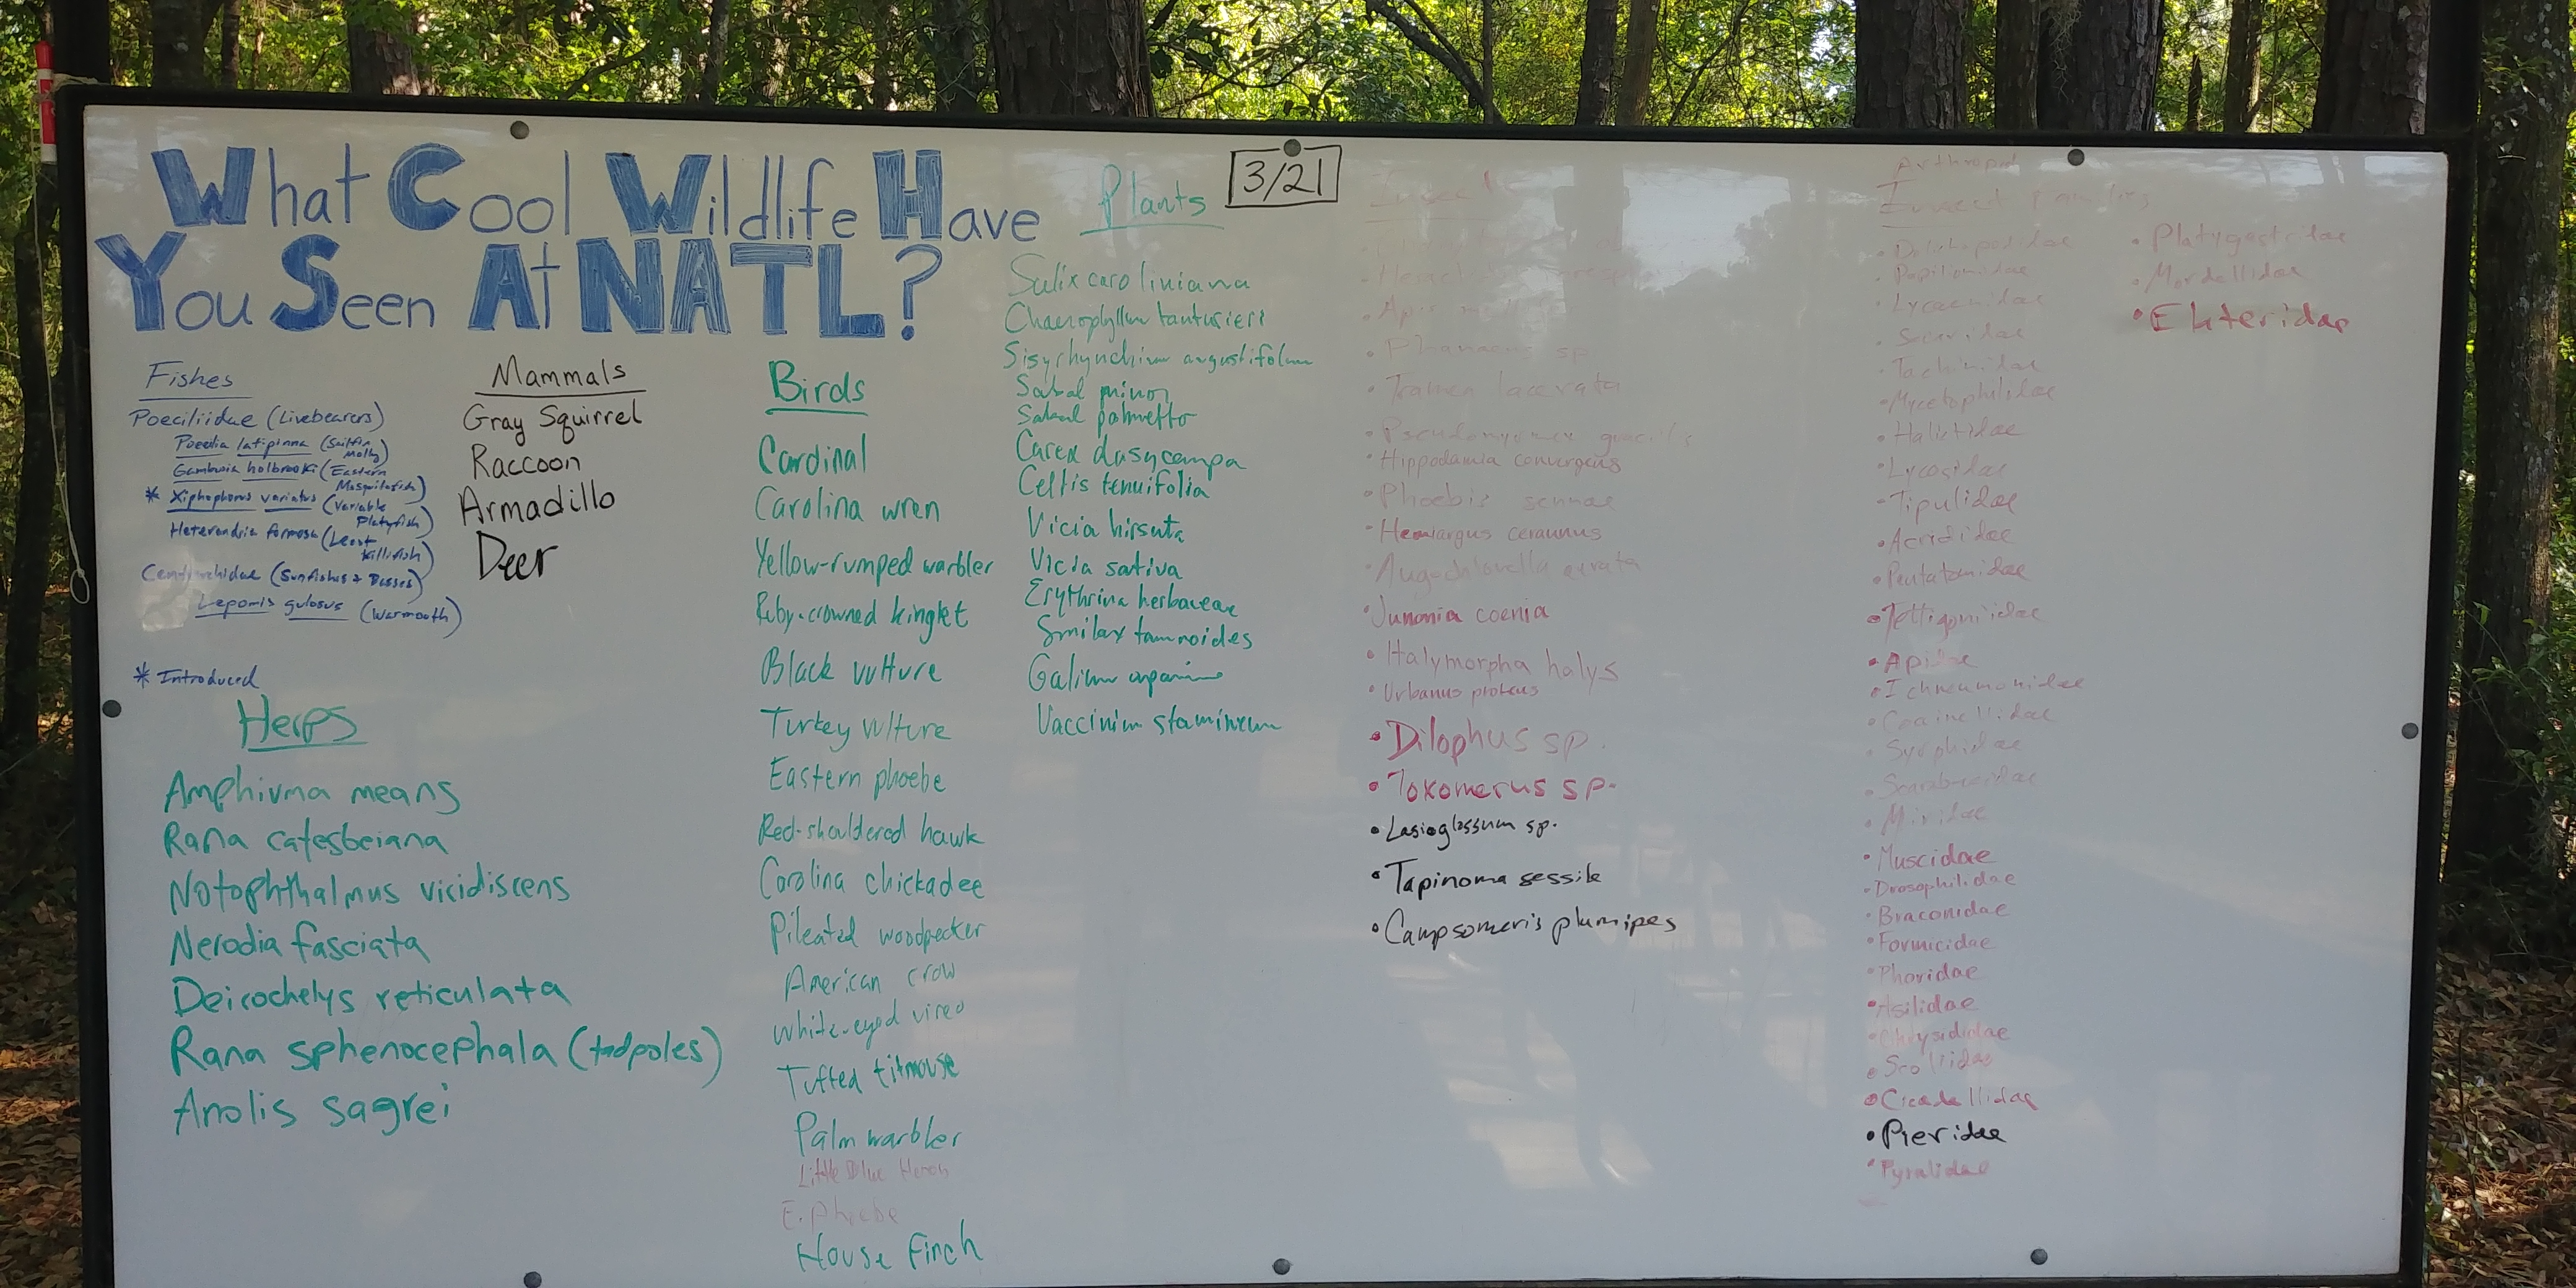 What Cool Wildlife Have
You Seen At NATL?
3/21
Fishes
Poeciliidae (Livebearers)
Poecilia latipinna (Sailfin
Molly)
Gambusia holbrooki (Eastern
Mosquitofish)
* Xiphophorus variatus (Variable
Platyfish)
Heterandria formosa (Least
killifish)
Centrarchidae (Sunfishes + Basses)
Lepomis gulosus (Warmouth)
* Introduced
Mammals
Gray Squirrel
Raccoon
Armadillo
Deer
Herps
Amphiuma means
Rana catesbeiana
Notophthalmus viridiscens
Nerodia fasciata
Deirochelys reticulata
Rana sphenocephala (tadpoles)
Anolis sagrei
Birds
Cardinal
Carolina wren
Yellow-rumped warbler
Ruby-crowned kinglet
Black vulture
Turkey vulture
Eastern phoebe
Red-shouldered hawk
Carolina chickadee
Pileated woodpecker
American crow
White-eyed vireo
Tufted titmouse
Palm warbler
Little Blue Heron
E. Phoebe
House Finch
Plants
Salix caroliniana
Chaerophyllum tainturieri
Sisyrhynchium angustifolium
Sabal minor
Sabal palmetto
Carex dasycarpa
Celtis tenuifolia
Vicia hirsuta
Vicia sativa
Erythrina herbaceae
Smilax tamnoides
Galium
Vaccinium stamineum
• Phanaeus sp.
• Tramea lacerata
• Pseudomyrmex gracilis
• Hippodamia convergens
• Phoebis sennae
• Hemiargus ceraunus
• Augochlorella aurata
• Junonia coenia
• Halymorpha halys
• Urbanus proteus
• Dilophus sp.
• Toxomerus sp.
• Lasioglossum sp.
• Tapinoma sessile
• Campsomeris plumipes
Arthropod
Insect Families
• Dolichopodidae
• Papilionidae
• Lycaenidae
• Tachinidae
• Mycetophilidae
• Halictidae
• Lycosidae
• Tipulidae
• Acrididae
• Pentatomidae
• Tettigoniidae
• Apidae
• Ichneumonidae
• Coccinellidae
• Syrphidae
• Scarabaeidae
• Miridae
• Muscidae
• Drosophilidae
• Braconidae
• Formicidae
• Phoridae
• Asilidae
• Chrysididae
• Scoliidae
• Cicadellidae
• Pieridae
• Pyralidae
• Platygastridae
• Mordellidae
• Elateridae